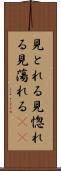 見とれる見惚れ
る見蕩れる